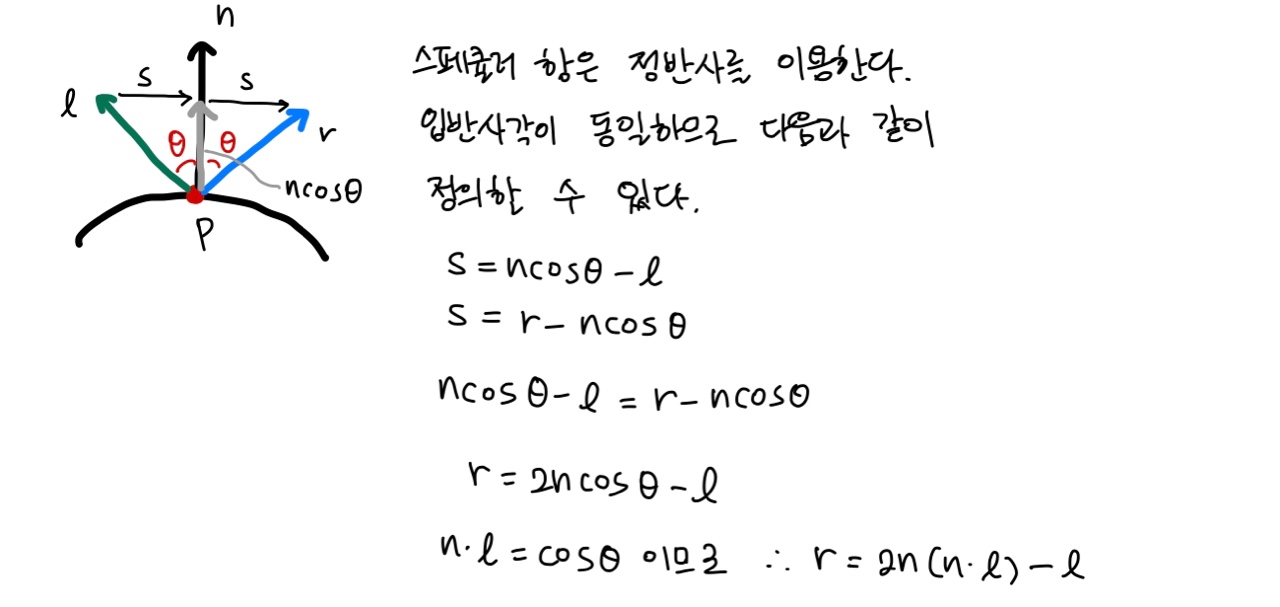 n
s
s
l
r
θ
θ
ncosθ
P
스페큘러 항은 정반사를 이용한다.
입반사각이 동일하므로 다음과 같이
정의할 수 있다.
s = ncosθ - l
s = r - ncosθ
ncosθ - l = r - ncosθ
r = 2ncosθ - l
n·l = cosθ 이므로 ∴ r = 2n(n·l) - l